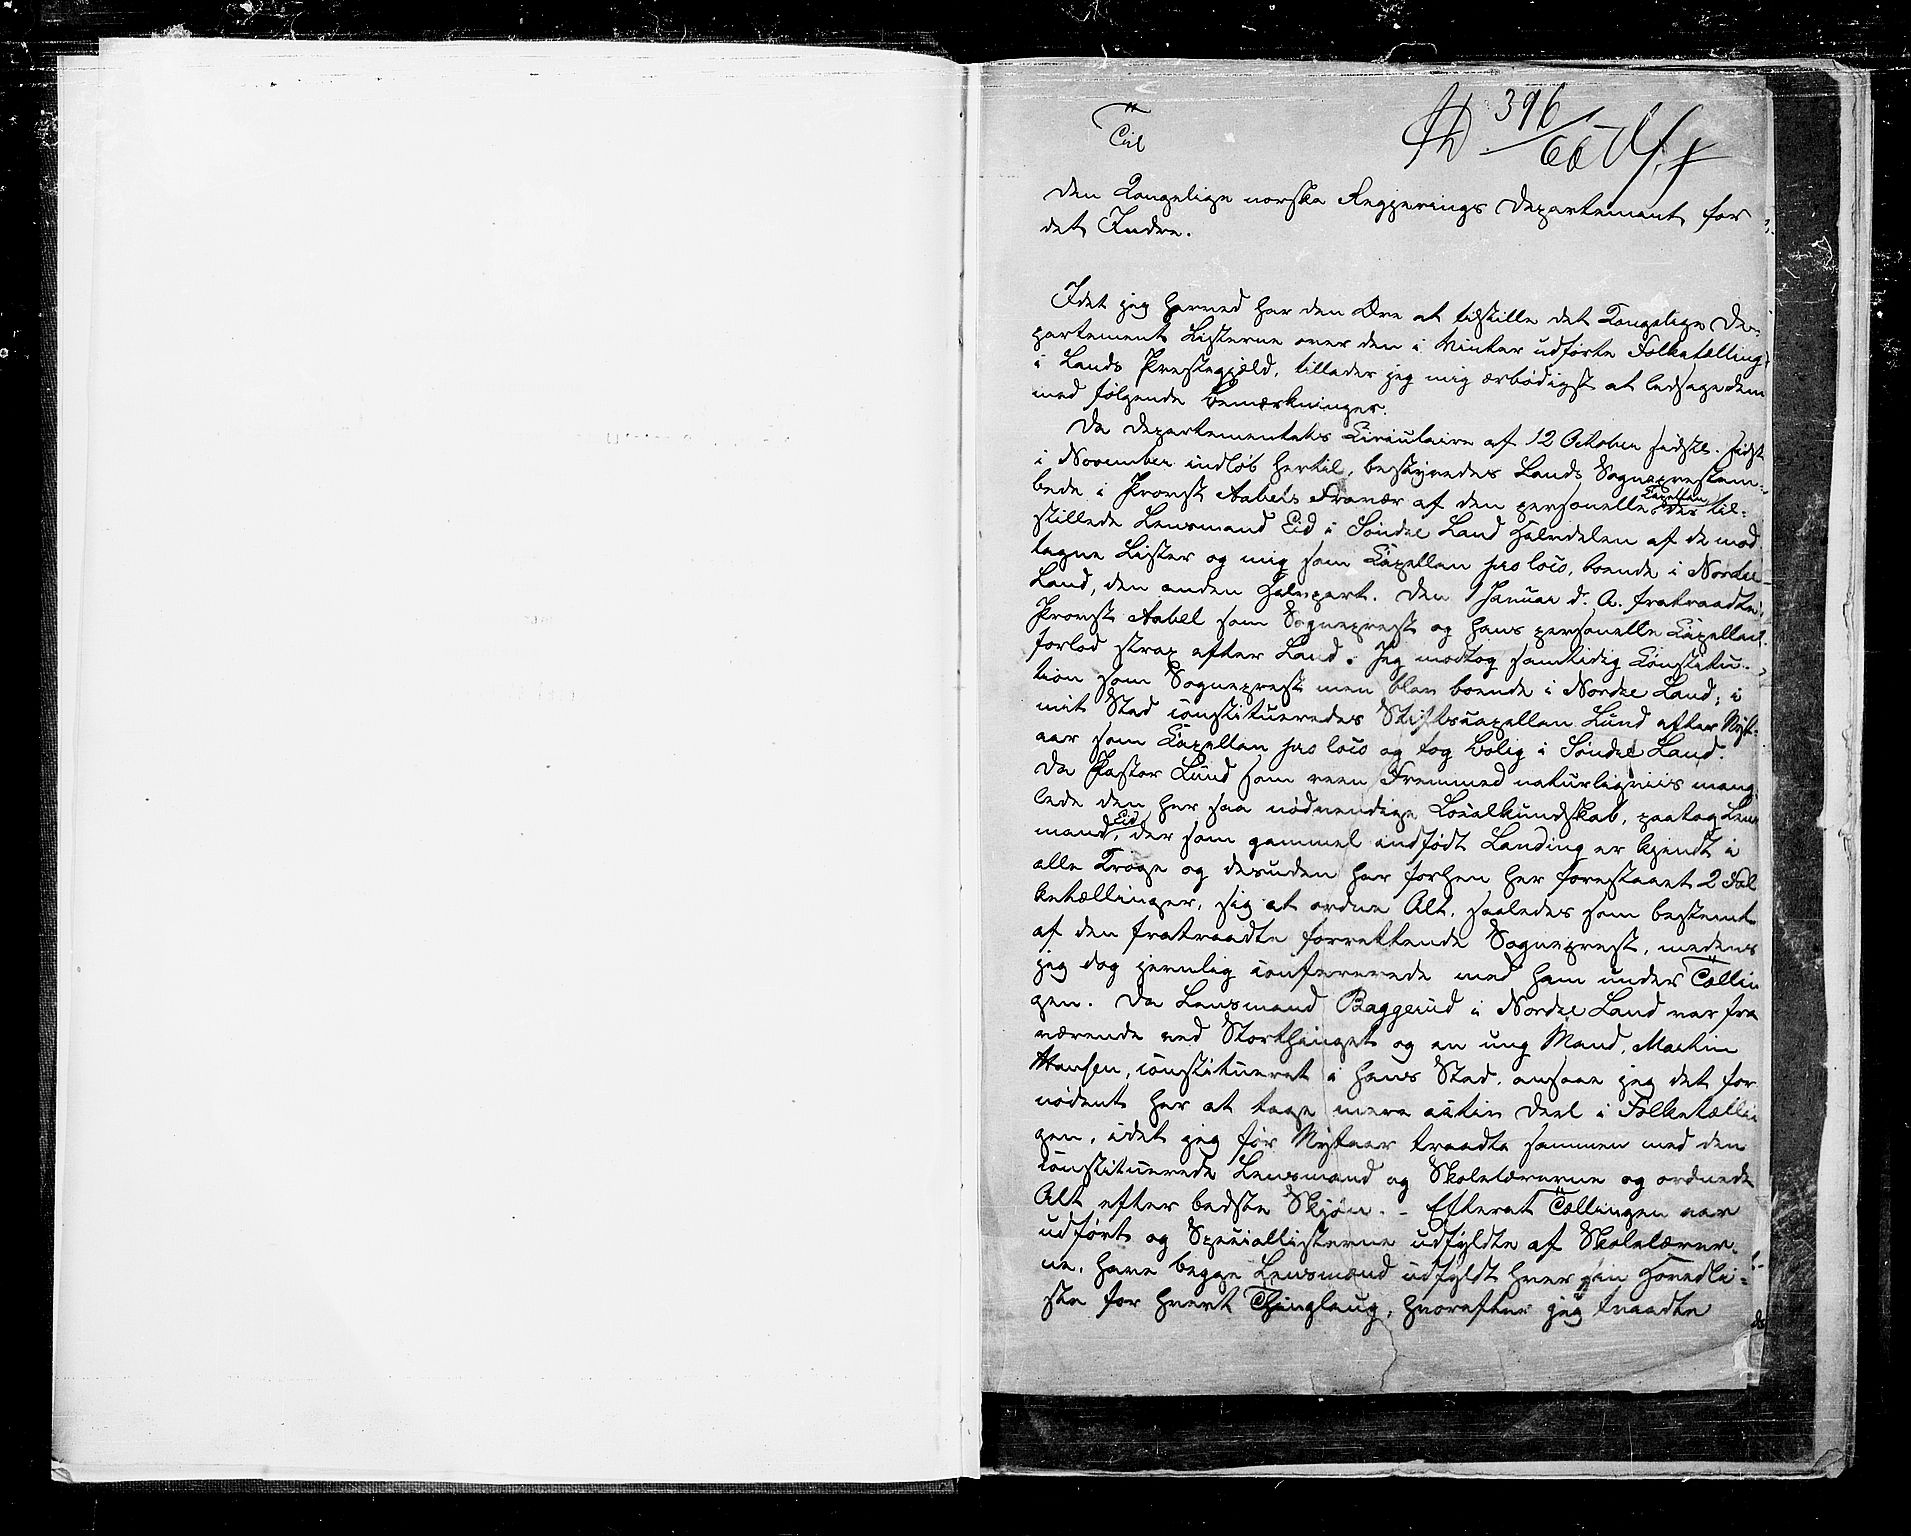 396/66
Til
den Kongelige norske Regjerings Departement for
det Indre.
Idet jeg herved har den Ære at tilstille det Kongelige De-
partement Listerne over den i Vinter udførte Folketælling
i Lands Prestegjæld, tillader jeg mig ærbødigst at ledsage dem
med følgende Bemærkninger.
Da Departementets Circulaire af 12 October sidstl. sidst
i November indløb hertil, bestyredes Lands Sogneprestem-
bede i Provst Aabels Fravær af den personelle Capellan, der til-
stillede Lensmand Eid i Søndre Land Halvdelen af de mod
tagne Lister og mig som Capellan pro loco, boende i Nordre
Land, den anden Halvpart. Den 1 Januar d. A. fratraadte
Provst Aabel som Sogneprest og hans personelle Capellan
forlod strax efter Land. Jeg modtog samtidig Constitu-
tion som Sogneprest men blev boende i Nordre Land; i
mit Sted constitueredes Stiftscapellan Lund efter Nyt-
aar som Capellan pro loco og tog Bolig i Søndre Land.
Da Pastor Lund som reen Fremmed naturligviis mang
lede den her saa nødvendige Localkundskab, paatog Lens
mand Eid, der som gammel indfødt Landing er kjendt i
alle Kroge og desuden har forhen her forestaaet 2 Fol
ketællinger, sig at ordne Alt, saaledes som bestemt
af den fratraadte forrettende Sogneprest, medens
jeg dog jevnlig confererede med ham under Tællin
gen. Da Lensmand Baggerud i Nordre Land var fra
værende ved Storthinget og en ung Mand, Martin
Hansen, constitueret i hans Sted, ansaae jeg det for
nødent her at tage mere activ Deel i Folketællin
gen, idet jeg før Nytaar traadte sammen med den
constituerede Lensmand og Skolelærerne og ordnede
Alt efter bedste Skjøn. – Efterat Tællingen var
udført og Speciallisterne udfyldte af Skolelærer-
ne, have begge Lensmænd udfyldt hver sin Hovedli-
ste for hvert Thinglaug, hvorefter jeg traadte